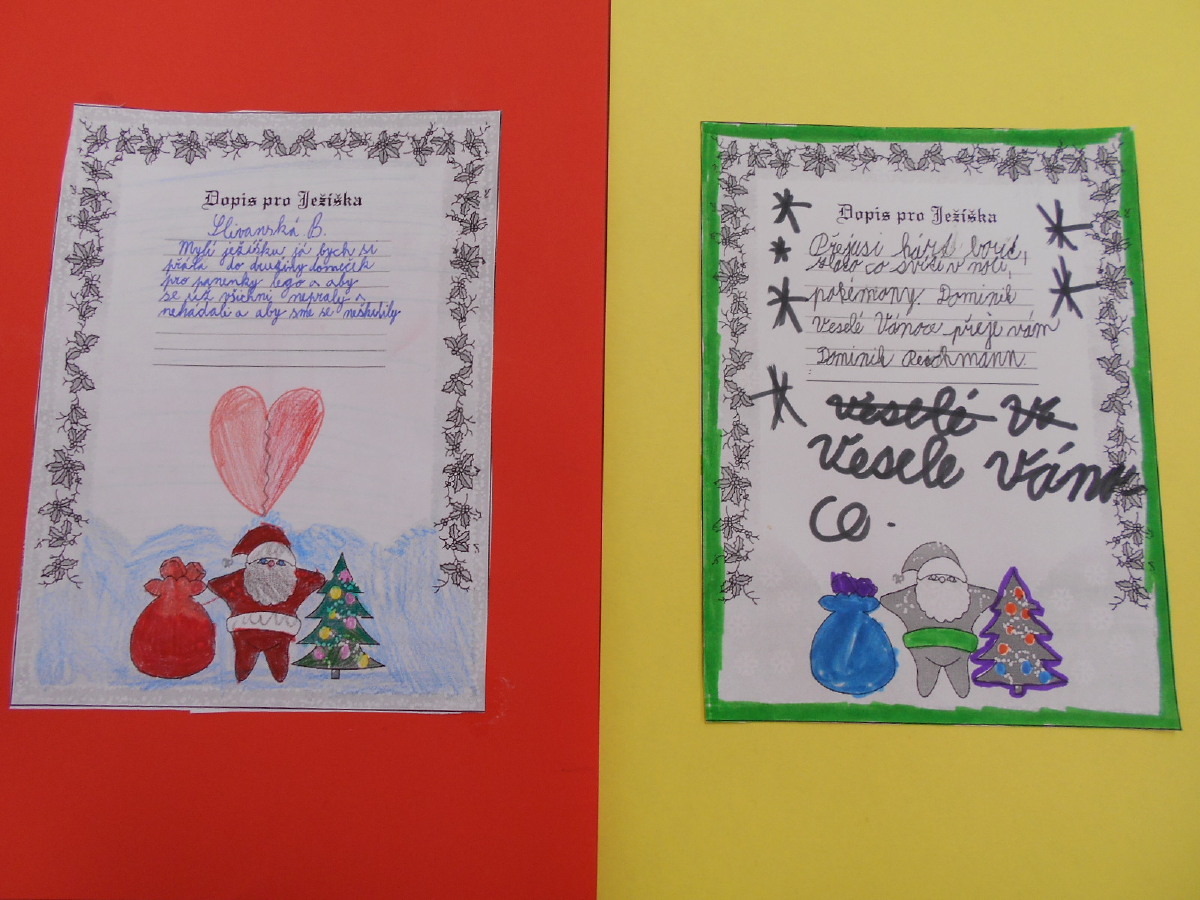 Dopis pro Ježíška
Slivanská B.
Mylí ježíšku já bych si
přála do družiny domeček
pro panenky lego a aby
se už všichni neprali a
nehádali a aby sme se neškubily
Dopis pro Ježíška
Přejusi hárd borić,
slajo co svítí v noci,
pokémony. Dominik
Veselé Vánoce přeje vám
Dominik Reichmann.
veselé Vá
Vesele Váno
ce.